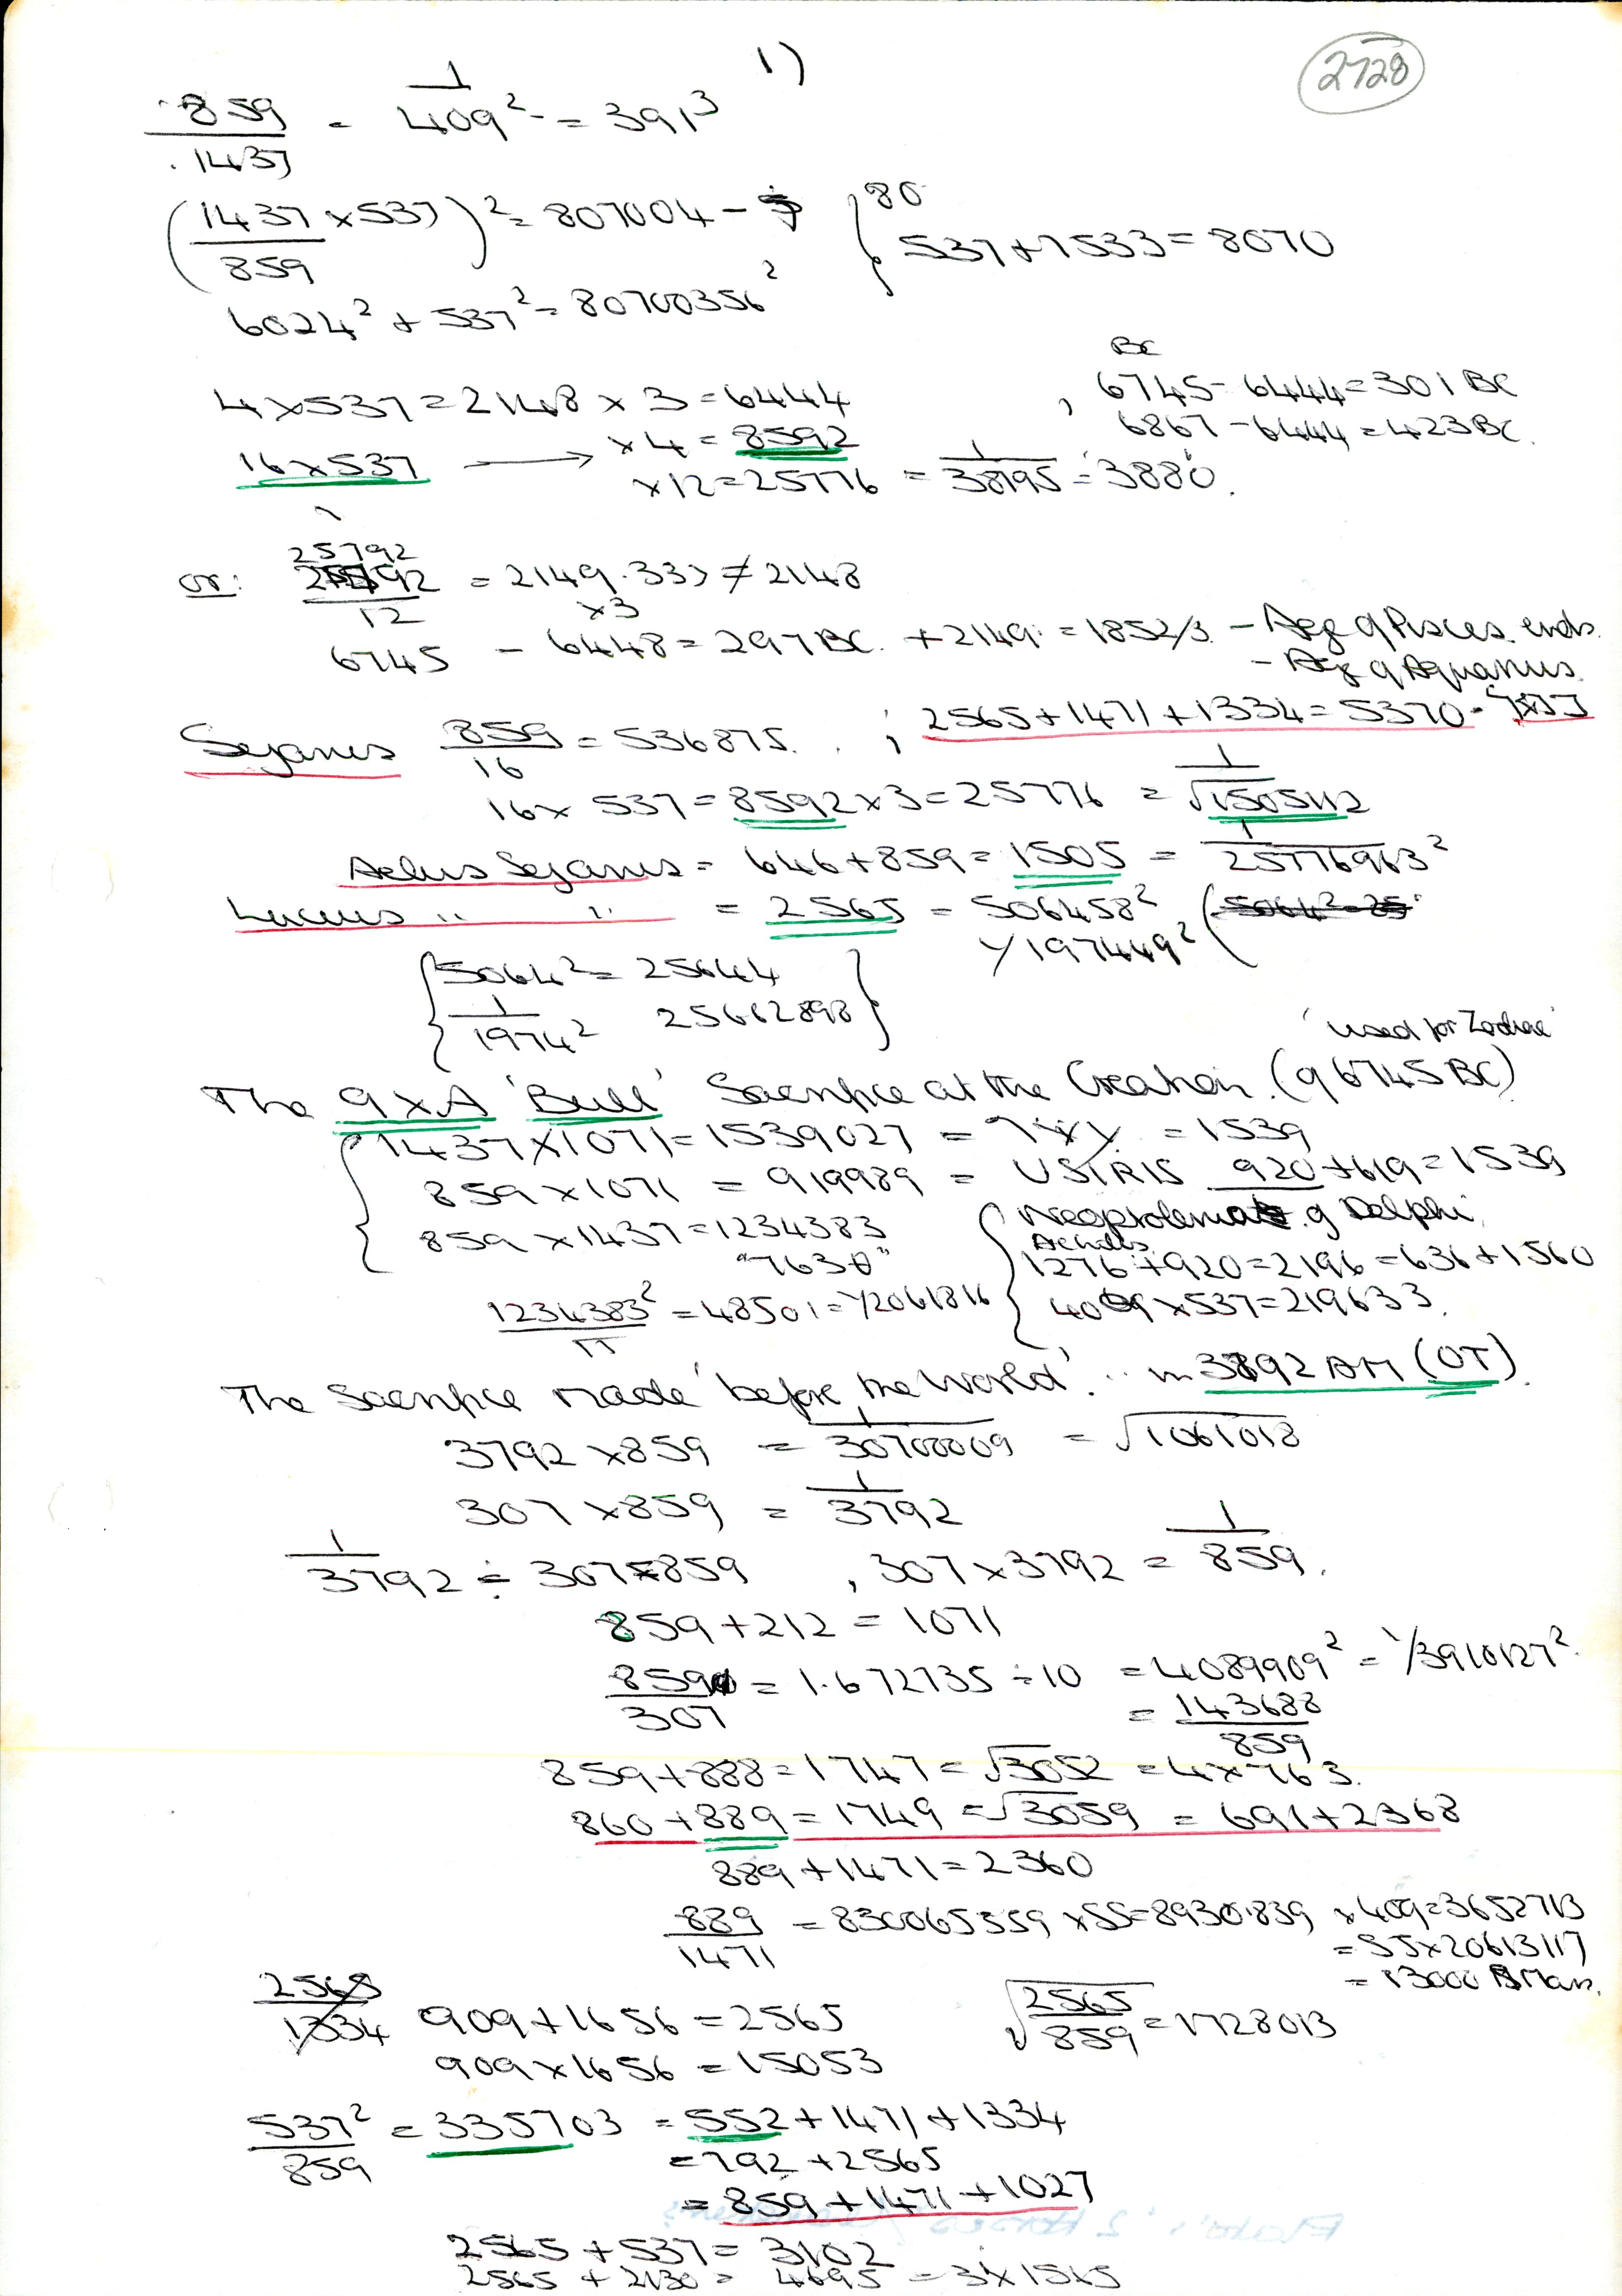 1)
2728
859/1437 = 1/409² = 391³
(1437/859 × 537)² = 807004 -
{ 80
537 + 7533 = 8070
6024² + 537² = 80700356²
BC
4 × 537 = 2148 × 3 = 6444 , 6745 - 6444 = 301 BC
× 4 = 8592 6867 - 6444 = 423 BC.
16 × 537 → × 12 = 25776 = 1/38795 = 3880.
or: 25792/12 = 2149.333 ≠ 2148
×3
6745 - 6448 = 297 BC. + 2149 = 1852/3 - Age of Pisces ends.
- Age of Aquarius.
Sejanus 859/16 = 536875. ; 2565 + 1471 + 1334 = 5370 =
16 × 537 = 8592 × 3 = 25776 = 1/√1505112
Aelius Sejanus = 646 + 859 = 1505 = 1/25776963²
Lucius " " = 2565 = 506458²
1/197449²
{ 5064² = 25644
1/1974² 25662898 }
'used for Zodiac'
The 9 × A 'Bull' Sacrifice at the Creation. (of 6745 BC)
1437 × 1071 = 1539027 = = 1539
859 × 1071 = 919989 = USIRIS 920 + 619 = 1539
859 × 1437 = 1234383 Neoptolemus of Delphi
"763θ" Achilles
1276 + 920 = 2196 = 636 + 1560
1234383²/π = 48501 = 1/2061816 409 × 537 = 219633.
The Sacrifice made 'before the World'... in 3792 AM (OT).
3792 × 859 = 1/30700009 = √1061018
307 × 859 = 1/3792
1/3792 = 307 × 859 , 307 × 3792 = 1/859.
859 + 212 = 1071
859/307 = 1.672735 ÷ 10 = 4089909² = 1/3910127².
= 143688/859
859 + 888 = 1747 = √3052 = 4 × 763.
860 + 889 = 1749 = √3059 = 691 + 2368
889 + 1471 = 2360
889/1471 = 830065359 × 55 = 8930839 × 409 = 3652713
= 55 × 20613117
= 13000
2565/1334 909 + 1656 = 2565 √2565/859 = 1728013
909 × 1656 = 15053
537²/859 = 335703 = 552 + 1471 + 1334
= 792 + 2565
= 859 + 1471 + 1027
2565 + 537 = 3102
2565 + 2130 = 4695 = 3 × 1565